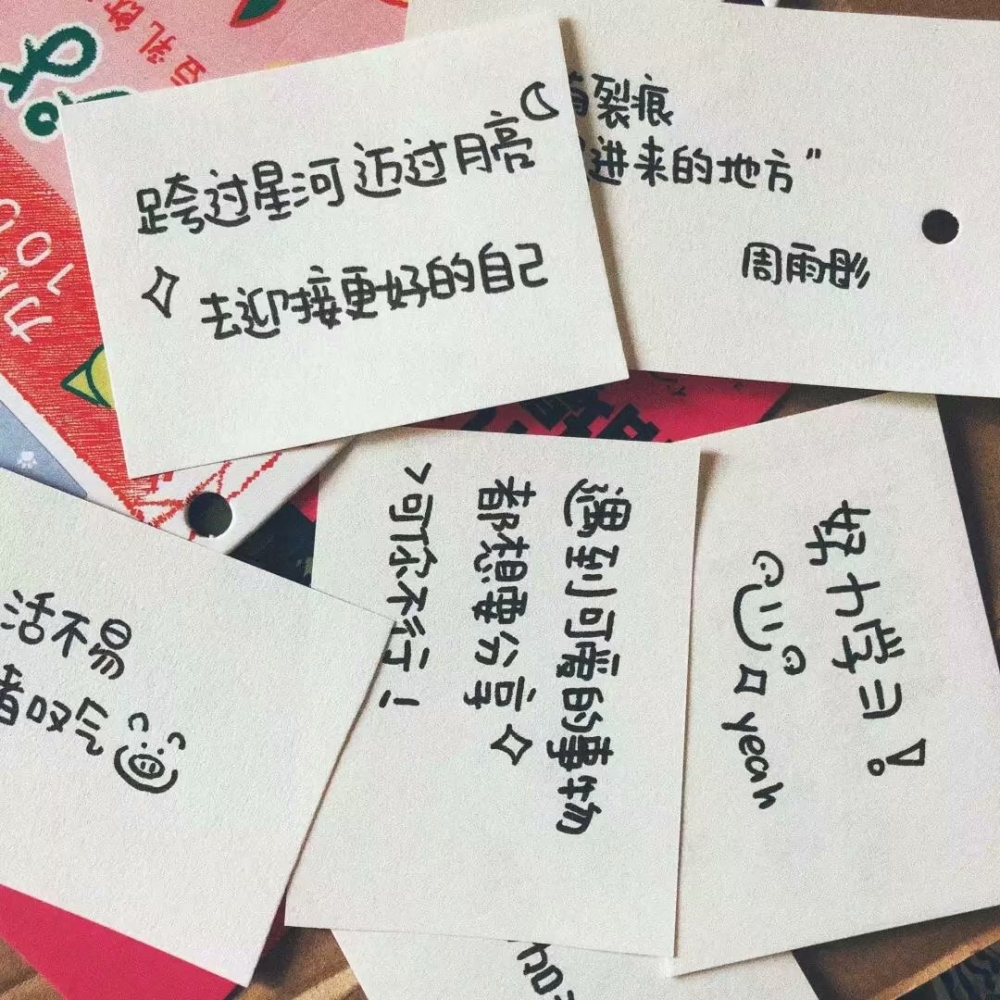 豆乳飲
100
跨过星河迈过月亮
去迎接更好的自己
有裂痕
进来的地方”
周雨彤
活不易
叹气
遇到可爱的事物
都想要分享
>可你不行!
好十学彐!
yeah